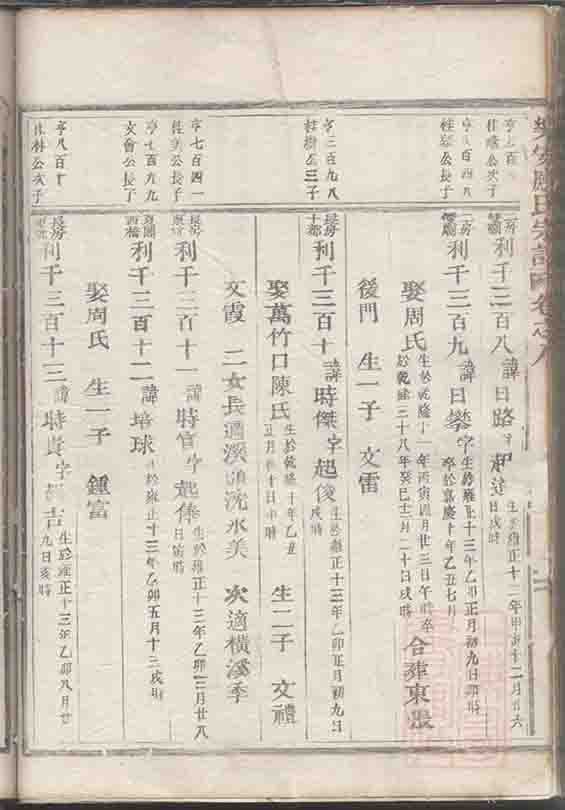 氏宗譜 卷之八
亨七百
桂 公次子
房
利千三百八 諱日路
生於雍正十二年甲寅十二月廿六
日戌時
亨七百四八
桂 公長子
房
利千三百九 諱日攀 字
生於雍正十三年乙卯正月初九日卯時
卒於嘉慶十年乙丑七月
娶周氏
生於乾隆十一年丙寅四月廿三日午時卒
於乾隆三十八年癸巳十二月二十日戌時
合葬東張
後門 生一子 文雷
亨三百九八
桂樹公三子
長房
十都
利千三百十 諱時傑 字起俊
生於雍正十三年乙卯正月初九日
戌時
娶萬竹口陳氏
生於乾隆十年乙丑
正月 十日申時
生二子 文禮
文霞 二女長適溪頭沈永美 次適橫溪季
亨七百四一
公長子
長房
利千三百十一 諱時官 字起俸
生於雍正十三年乙卯二月廿八
日寅時
亨七百九九
文會公長子
西橋
利千三百十二 諱培球
生於雍正十三年乙卯五月十三戌時
娶周氏 生一子 鍾富
亨八百十
桂林公次子
長房
利千三百十三 諱時貴 字 吉
生於雍正十三年乙卯八月廿
九日亥時